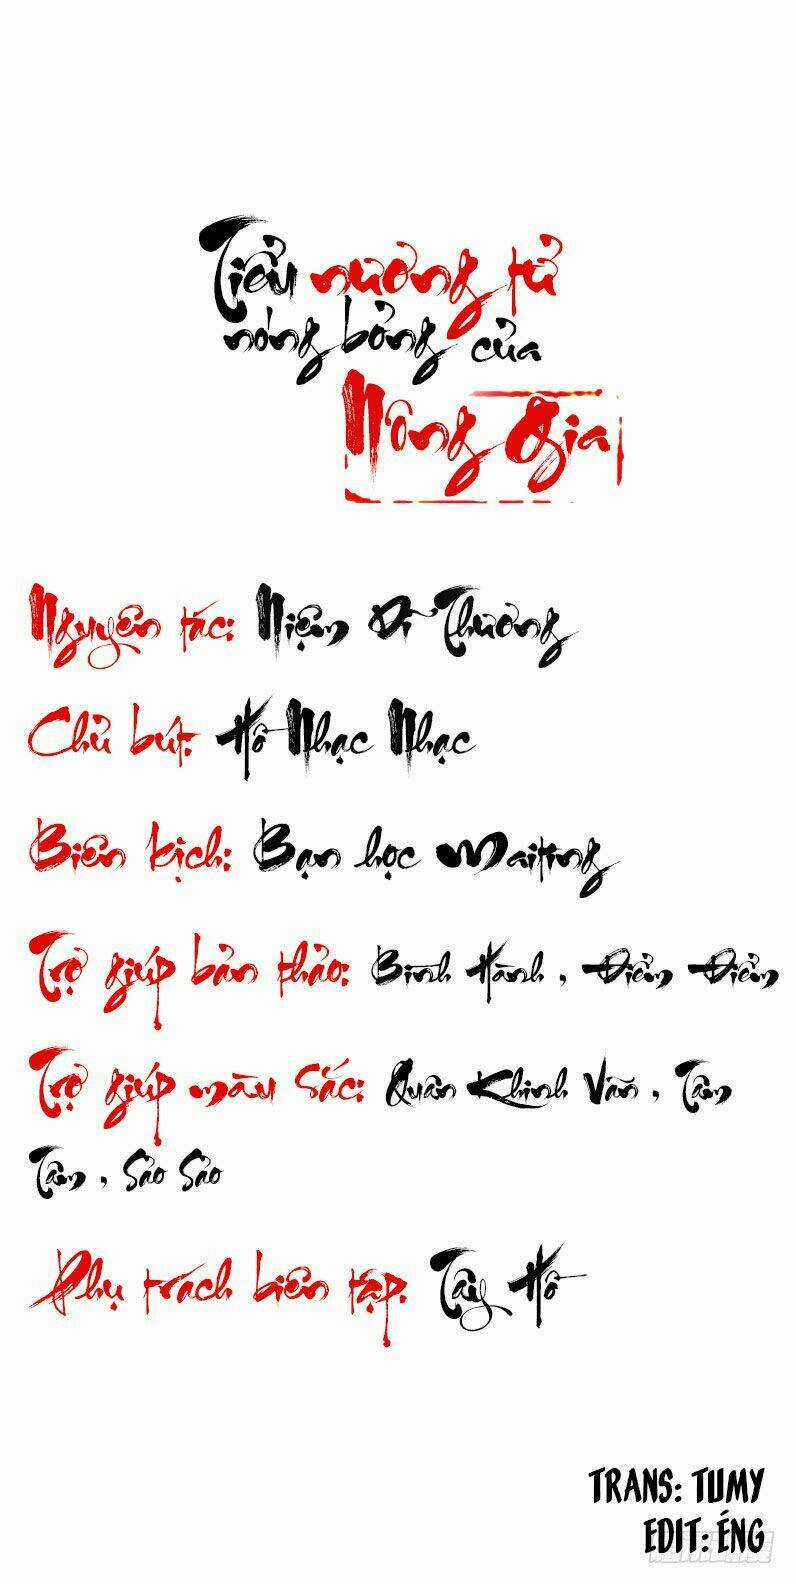 Tiểu nương tử
nóng bỏng của
Nông Gia
Nguyên tác: Niệm Dĩ Thường
Chủ bút: Hồ Nhạc Nhạc
Biên kịch: Bạn học Maiting
Trợ giúp bản thảo: Bình Hành, Điểm Điểm
Trợ giúp màu sắc: Quân Khinh Vãn, Tâm
Tâm, Sảo Sảo
Phụ trách biên tập: Tây Hồ
TRANS: TUMY
EDIT: ÉNG